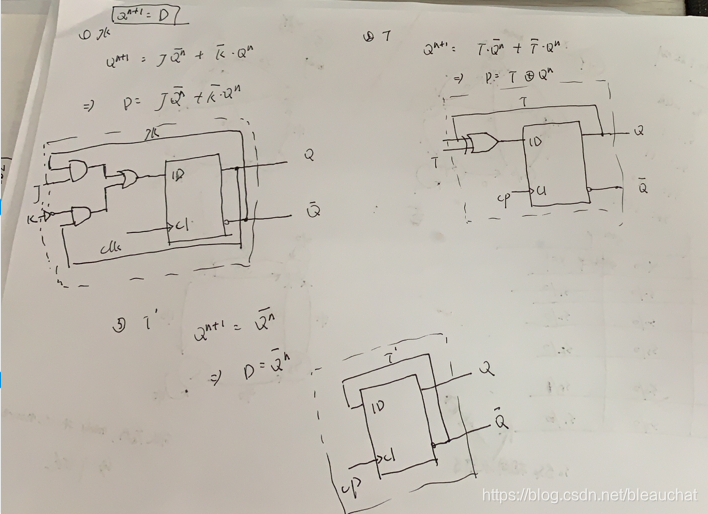 Qⁿ⁺¹ = D
① JK
Qⁿ⁺¹ = JQ̄ⁿ + K̄·Qⁿ
⇒ D = JQ̄ⁿ + K̄·Qⁿ
JK
J
K
1D
C1
clk
Q
Q̄
② T
Qⁿ⁺¹ = T·Q̄ⁿ + T̄·Qⁿ
⇒ D = T ⊕ Qⁿ
T
T
1D
CP
C1
Q
Q̄
③ T'
Qⁿ⁺¹ = Q̄ⁿ
⇒ D = Q̄ⁿ
T'
1D
C1
CP
Q
Q̄
https://blog.csdn.net/bleauchat